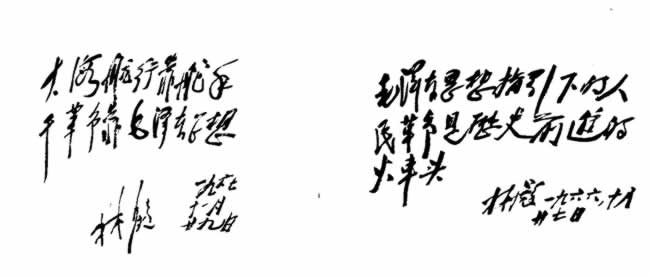 大海航行靠舵手
干革命靠毛澤东思想
林彪
一九六七
十一月
廿九日
毛澤东思想指引下的人
民革命是歷史前進的
火車头
林彪 一九六六，十月
廿七日